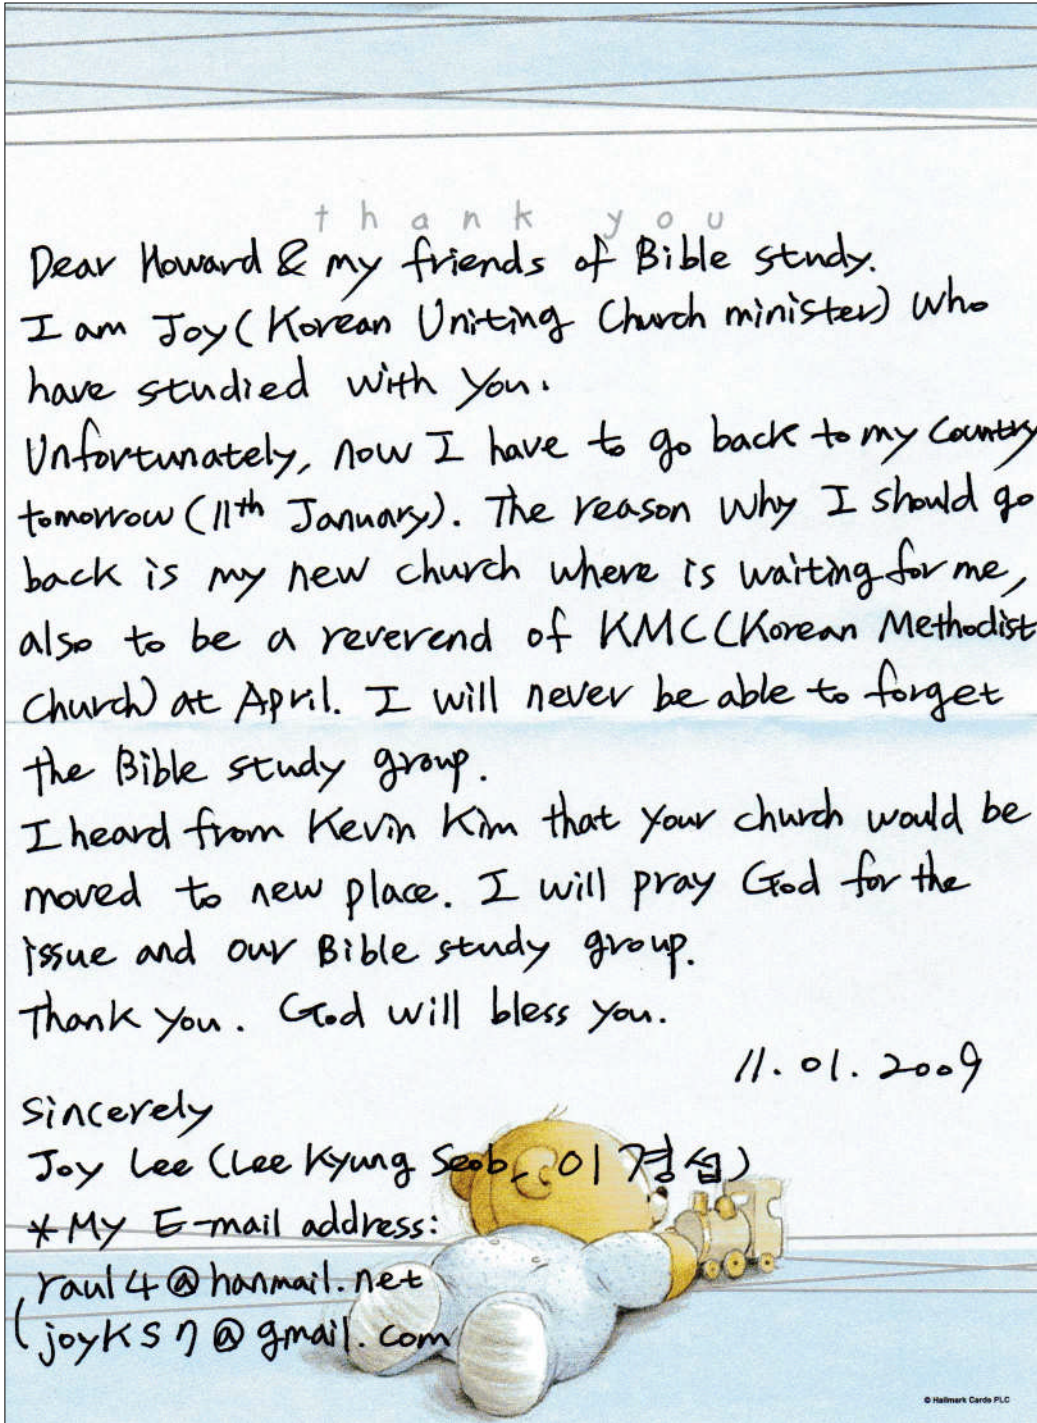 thank you
Dear Howard & my friends of Bible study.
I am Joy (Korean Uniting Church minister) who
have studied with you.
Unfortunately, now I have to go back to my country
tomorrow (11th January). The reason why I should go
back is my new church where is waiting for me,
also to be a reverend of KMC (Korean Methodist
Church) at April. I will never be able to forget
the Bible study group.
I heard from Kevin Kim that your church would be
moved to new place. I will pray God for the
issue and our Bible study group.
Thank you. God will bless you.
11. 01. 2009
Sincerely
Joy Lee (Lee Kyung Seob, 이경섭)
* My E-mail address:
raul4@hanmail.net
joyks7@gmail.com
© Hallmark Cards PLC